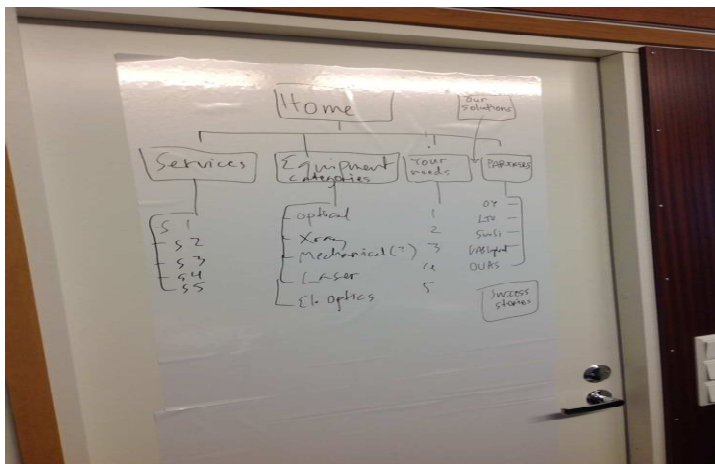 Home
Our
solutions
Services
Equipment
categories
Your
needs
PARTNERS
S 1
S 2
S 3
S 4
S 5
optical
Xray
Mechanical (?)
Laser
El. optics
1
2
3
4
5
OY
LTU
Swsi
OUAS
Success
stories